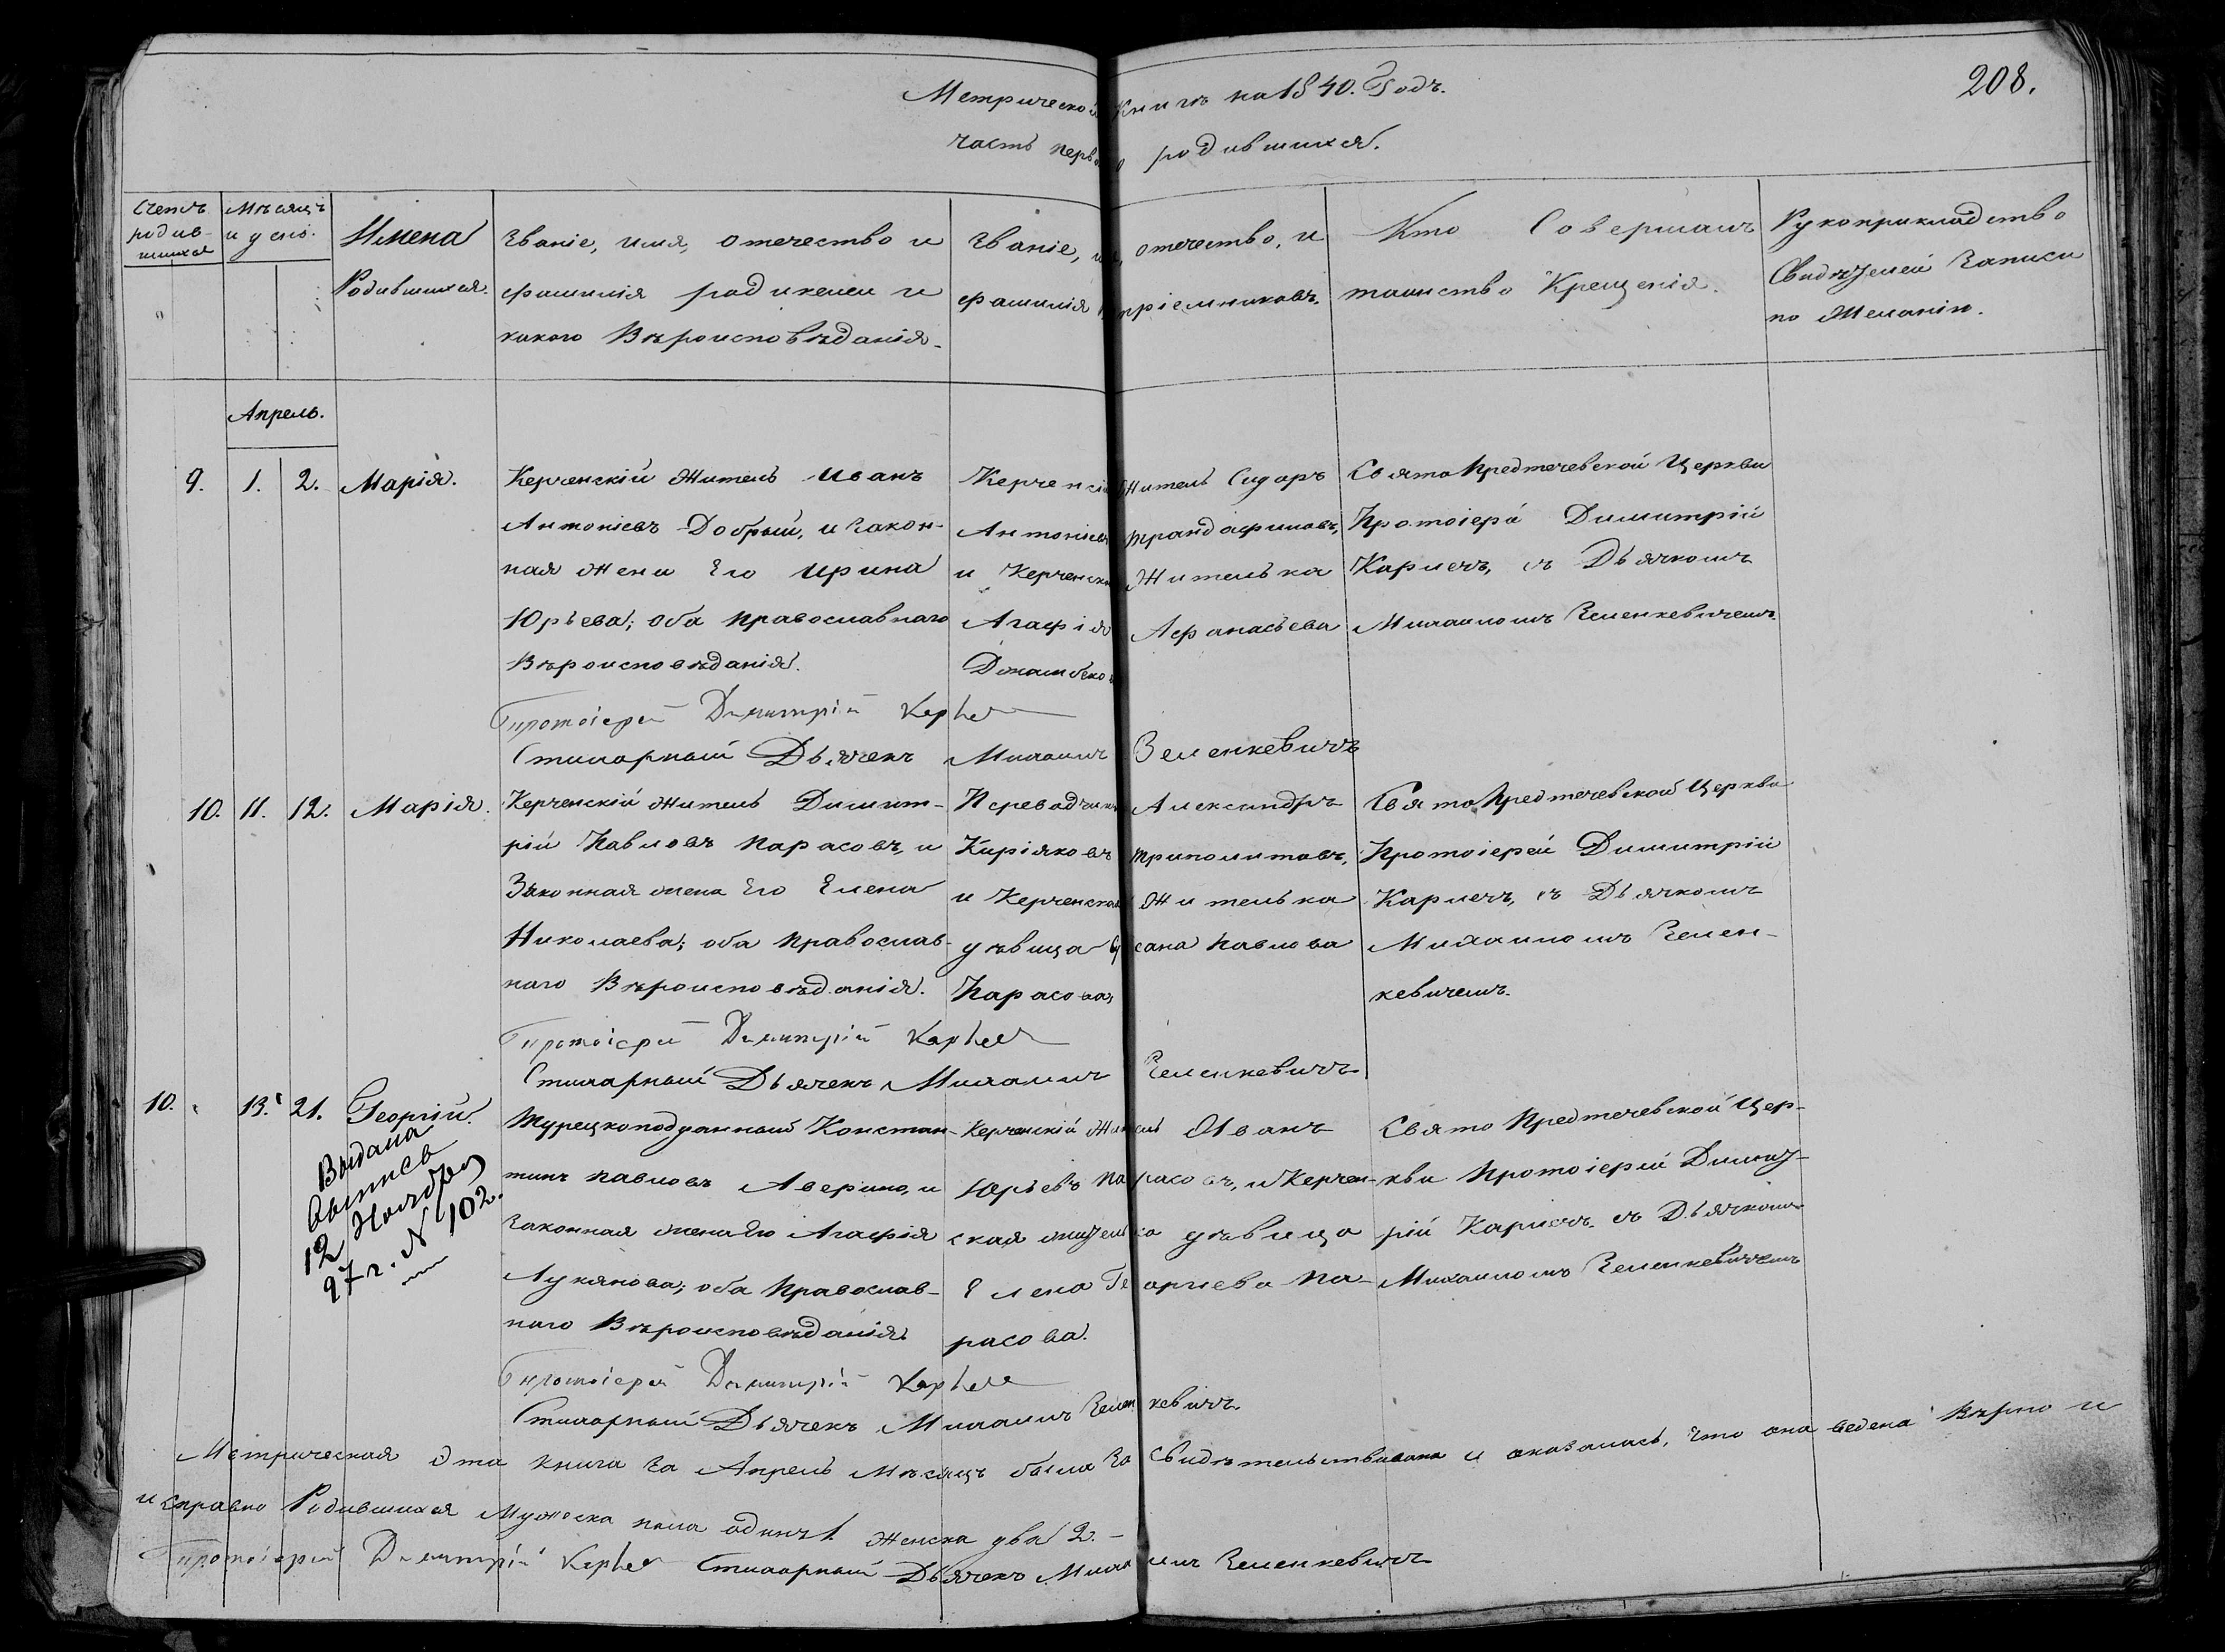 208.
Метрической Книгѣ на 1840. Годъ.
часть первая о родившихся.
Счетъ родив-шихся
Мѣсяцъ и день.
Имена Родившихся.
Званіе, имя, отечество и
фамилія родителей и
какого Вѣроисповѣданія.
Званіе, имя, отечество, и
фамилія воспріемниковъ.
Кто Совершалъ
таинство Крещенія.
Рукоприкладство
Свидѣтелей Записи
по Желанію.
Апрель.
9. 1. 2. Марія.
Керченскій житель Иванъ
Антоніевъ Добрый, и Закон-
ная жена Его Ирина
Юрьева; оба православнаго
Вѣроисповѣданія.
Керченскій Житель Сидоръ
Антоніевъ Трандафиловъ,
и Керченская Жителька
Агафія Афанасьева
Свято Предтечевской Церкви
Протоіерей Димитрій
Карнечъ, съ Дьячкомъ
Михаиломъ Зеленкевичемъ.
Протоіерей Димитрій
Стихарный Дьячекъ Михаилъ Зеленкевичъ
10. 11. 12. Марія.
Керченскій житель Димит-
рій Павловъ Парасовъ, и
Законная жена Его Елена
Николаева; оба Православ-
наго Вѣроисповѣданія.
Переводчикъ Александръ
Киріяковъ Триполитовъ,
и Керченская Жителька
дѣвица Сусана Павлова
Парасова,
Свято Предтечевской Церкви
Протоіерей Димитрій
Карнечъ, съ Дьячкомъ
Михаиломъ Зелен-
кевичемъ.
Протоіерей Димитрій
Стихарный Дьячекъ Михаилъ Зеленкевичъ
10. 13. 21. Георгій.
Выдана
выпись
12 Ноября
97 г. N 102.
Турецкоподданный Констан-
тинъ Павловъ Аверино, и
Законная жена Его Агафія
Лукянова; оба Православ-
наго Вѣроисповѣданія
Керченскій Житель Иванъ
Юрьевъ Парасовъ, и Керчен-
ская жителька дѣвица
Елена Георгиева Па-
расова.
Свято Предтечевской Цер-
кви Протоіерей Димит-
рій Карнечъ съ Дьячкомъ
Михаиломъ Зеленкевичемъ
Протоіерей Димитрій
Стихарный Дьячекъ Михаилъ Зеленкевичъ
Метрическая эта книга за Апрель Мѣсяцъ была Засвидѣтельствована и оказалась, что она ведена вѣрно и
исправно Родившихся Мужеска пола одинъ 1 Женска два 2. –
Протоіерей Димитрій Стихарный Дьячекъ Михаилъ Зеленкевичъ